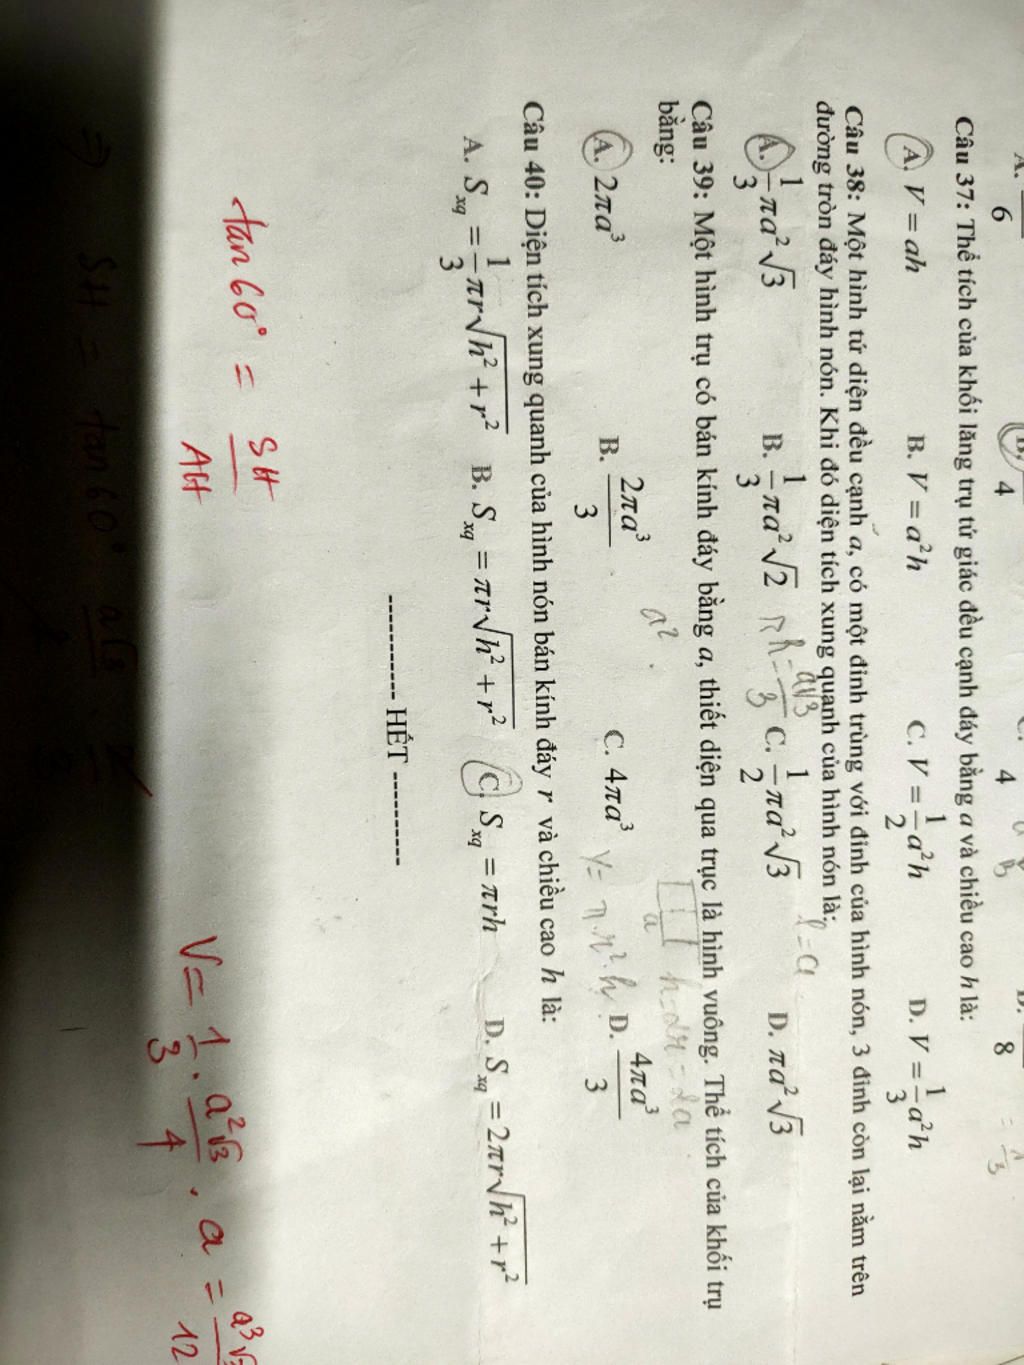 A.
6
B.
4
C.
4
D.
8
= 1/3
Câu 37: Thể tích của khối lăng trụ tứ giác đều cạnh đáy bằng a và chiều cao h là:
A. V = ah B. V = a²h C. V = 1/2 a²h D. V = 1/3 a²h
Câu 38: Một hình tứ diện đều cạnh a, có một đỉnh trùng với đỉnh của hình nón, 3 đỉnh còn lại nằm trên
đường tròn đáy hình nón. Khi đó diện tích xung quanh của hình nón là:
l = a
A. 1/3 πa²√3 B. 1/3 πa²√2 C. 1/2 πa²√3 D. πa²√3
= a√3/3
Câu 39: Một hình trụ có bán kính đáy bằng a, thiết diện qua trục là hình vuông. Thể tích của khối trụ
bằng:
a²
a
h = 2r = 2a
A. 2πa³ B. 2πa³/3 C. 4πa³ D. 4πa³/3
V = π.r².h
Câu 40: Diện tích xung quanh của hình nón bán kính đáy r và chiều cao h là:
A. Sxq = 1/3 πr√(h² + r²) B. Sxq = πr√(h² + r²) C. Sxq = πrh D. Sxq = 2πr√(h² + r²)
---------- HẾT ----------
tan 60° = SH/AH
V = 1/3 . a²√3/4 . a = a³√3/12
⇒ SH = tan 60°